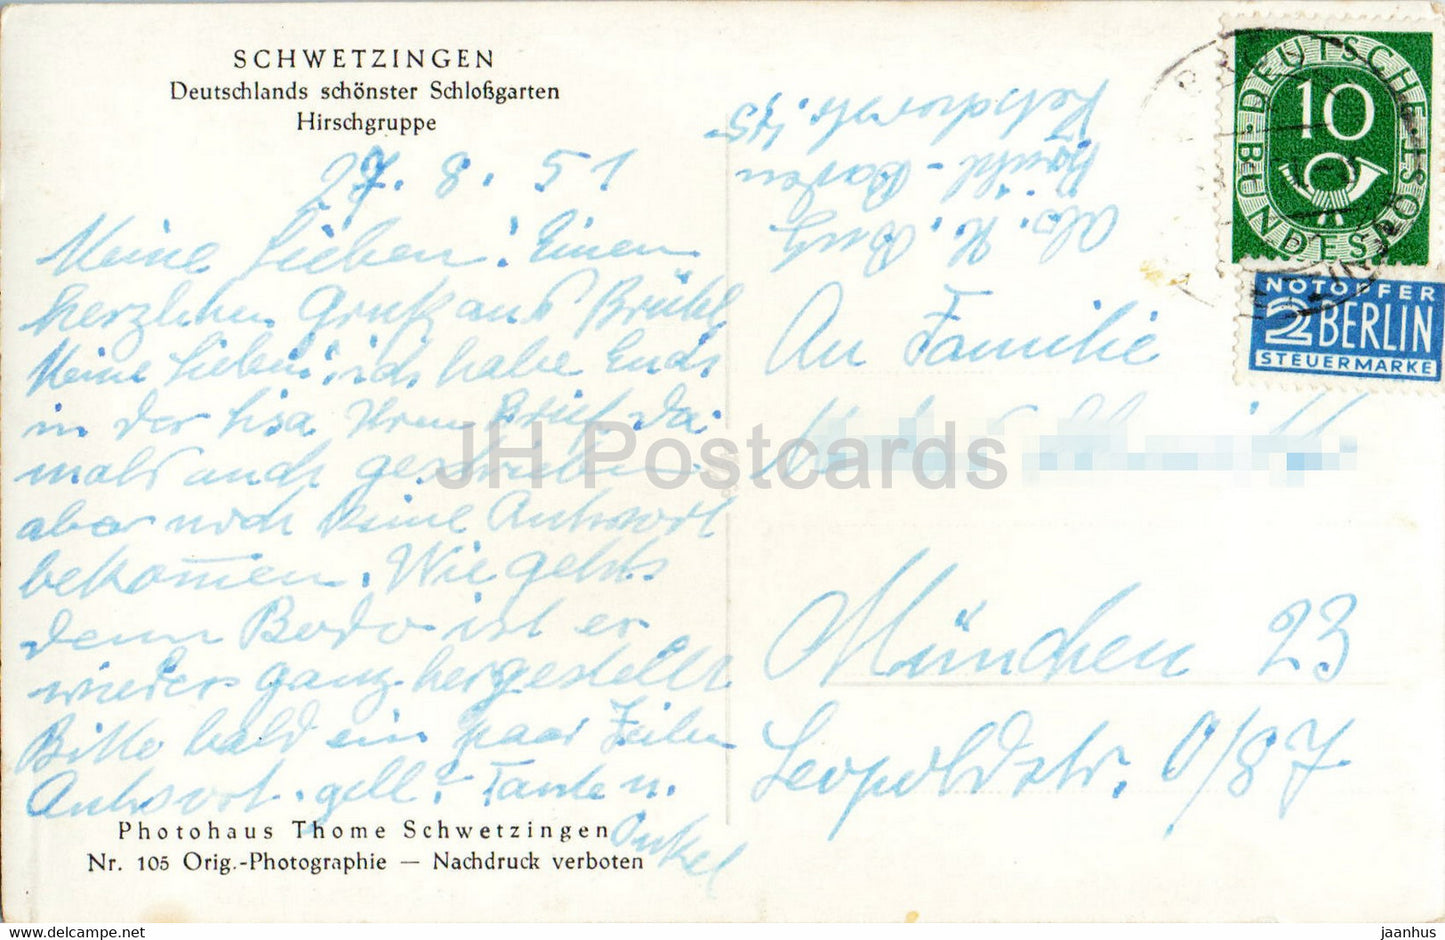 SCHWETZINGEN
Deutschlands schönster Schloßgarten
Hirschgruppe
27. 8. 51
Meine Lieben! Einen
herzlichen Gruß aus Brühl
Meine Lieben! ich habe Ends
in der Lisa Ihren Brief da
mals auch geschrieben
aber noch keine Antwort
bekommen. Wie gehts
denn Bodo ist er
wieder ganz hergestellt
Bitte bald ein paar Zeilen
Antwort. gell? Tante u.
Onkel
Photohaus Thome Schwetzingen
Nr. 105 Orig.-Photographie — Nachdruck verboten
Abs. K.
Brühl-Baden
45
An Familie
München 23
Leopoldstr. 0/87
DEUTSCHE BUNDESPOST
10
NOTOPFER
2 BERLIN
STEUERMARKE
JH Postcards
HipPostcard.com
jaanhus